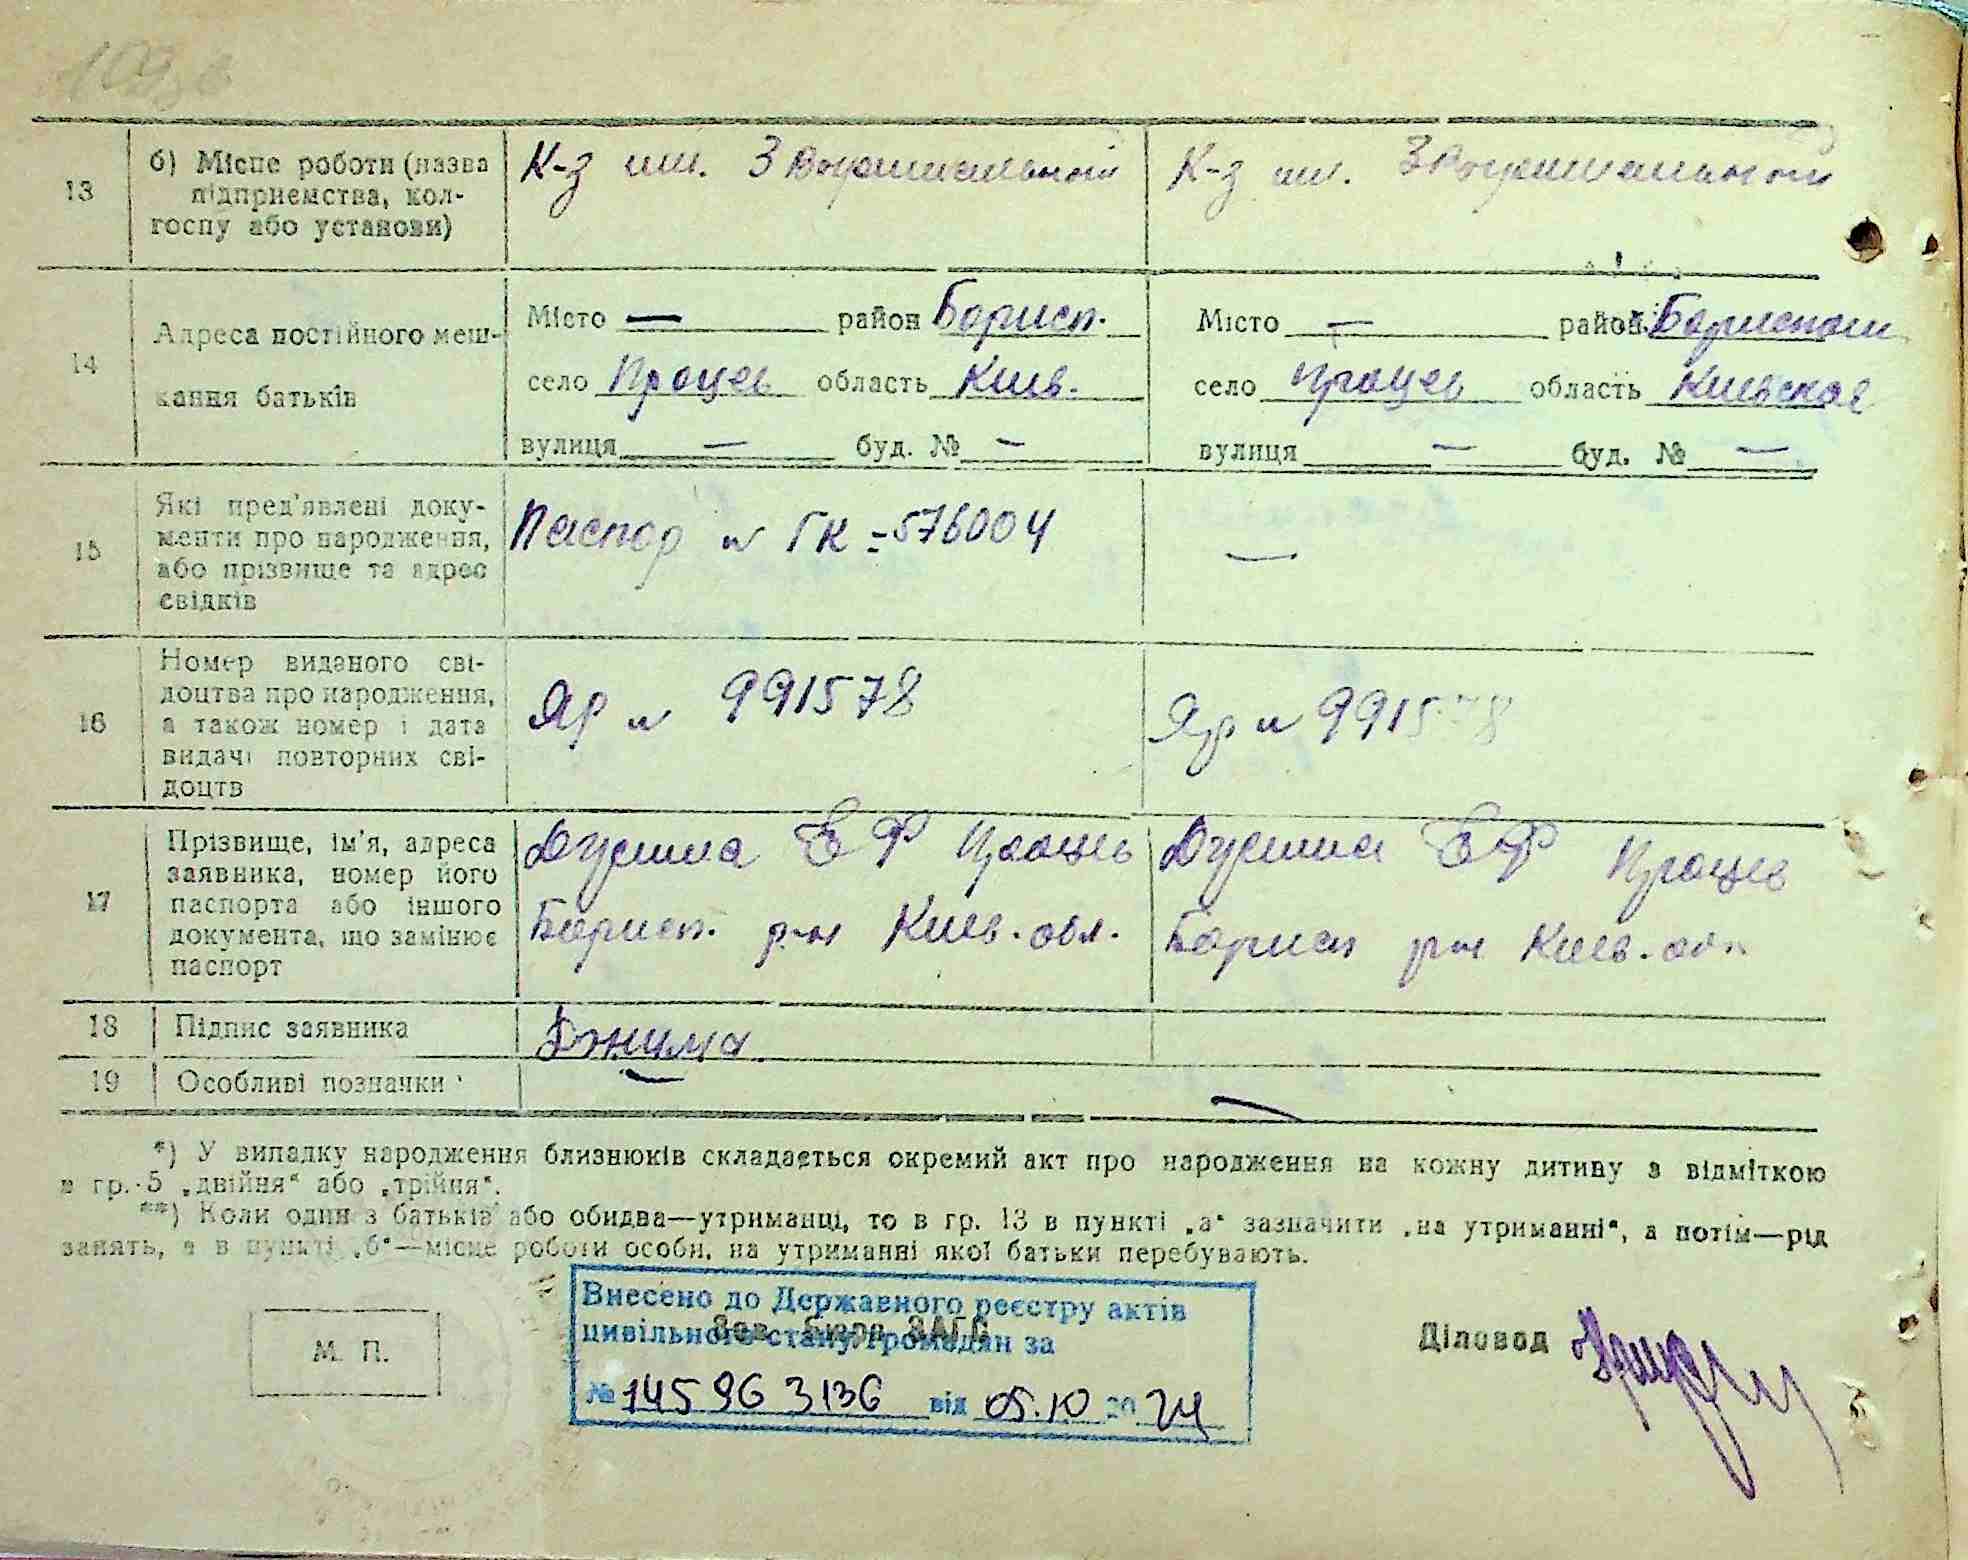 13
б) Місце роботи (назва
підприємства, кол-
госпу або установи)
К-з им.
К-з им.
14
Адреса постійного меш-
кання батьків
Місто — район Борисп.
село Процев область Киев.
вулиця — буд. № —
Місто — район Бориспол
село Процев область Киевская
вулиця — буд. № —
15
Які пред'явлені доку-
менти про народження,
або прізвище та адрес
свідків
Паспор № ГК-576004
—
16
Номер виданого сві-
доцтва про народження,
а також номер і дата
видачі повторних сві-
доцтв
ЯР № 991578
Яр № 991578
17
Прізвище, ім'я, адреса
заявника, номер його
паспорта або іншого
документа, що замінює
паспорт
Е Ф Процев
Борисп. р-н Киев. обл.
Е Ф Процев
Борисп рн Киев. обл
18
Підпис заявника
19
Особливі позначки
—
—
*) У випадку народження близнюків складається окремий акт про народження на кожну дитину з відміткою
в гр. 5 „двійня“ або „трійня“.
**) Коли один з батьків або обидва—утриманці, то в гр. 13 в пункті „а“ зазначити „на утриманні“, а потім—рід
занять, а в пункті „б“—місце роботи особи, на утриманні якої батьки перебувають.
М. П.
Зав. бюро ЗАГС
Внесено до Державного реєстру актів
цивільного стану громадян за
№ 145963136 від 05.10 2024
Діловод